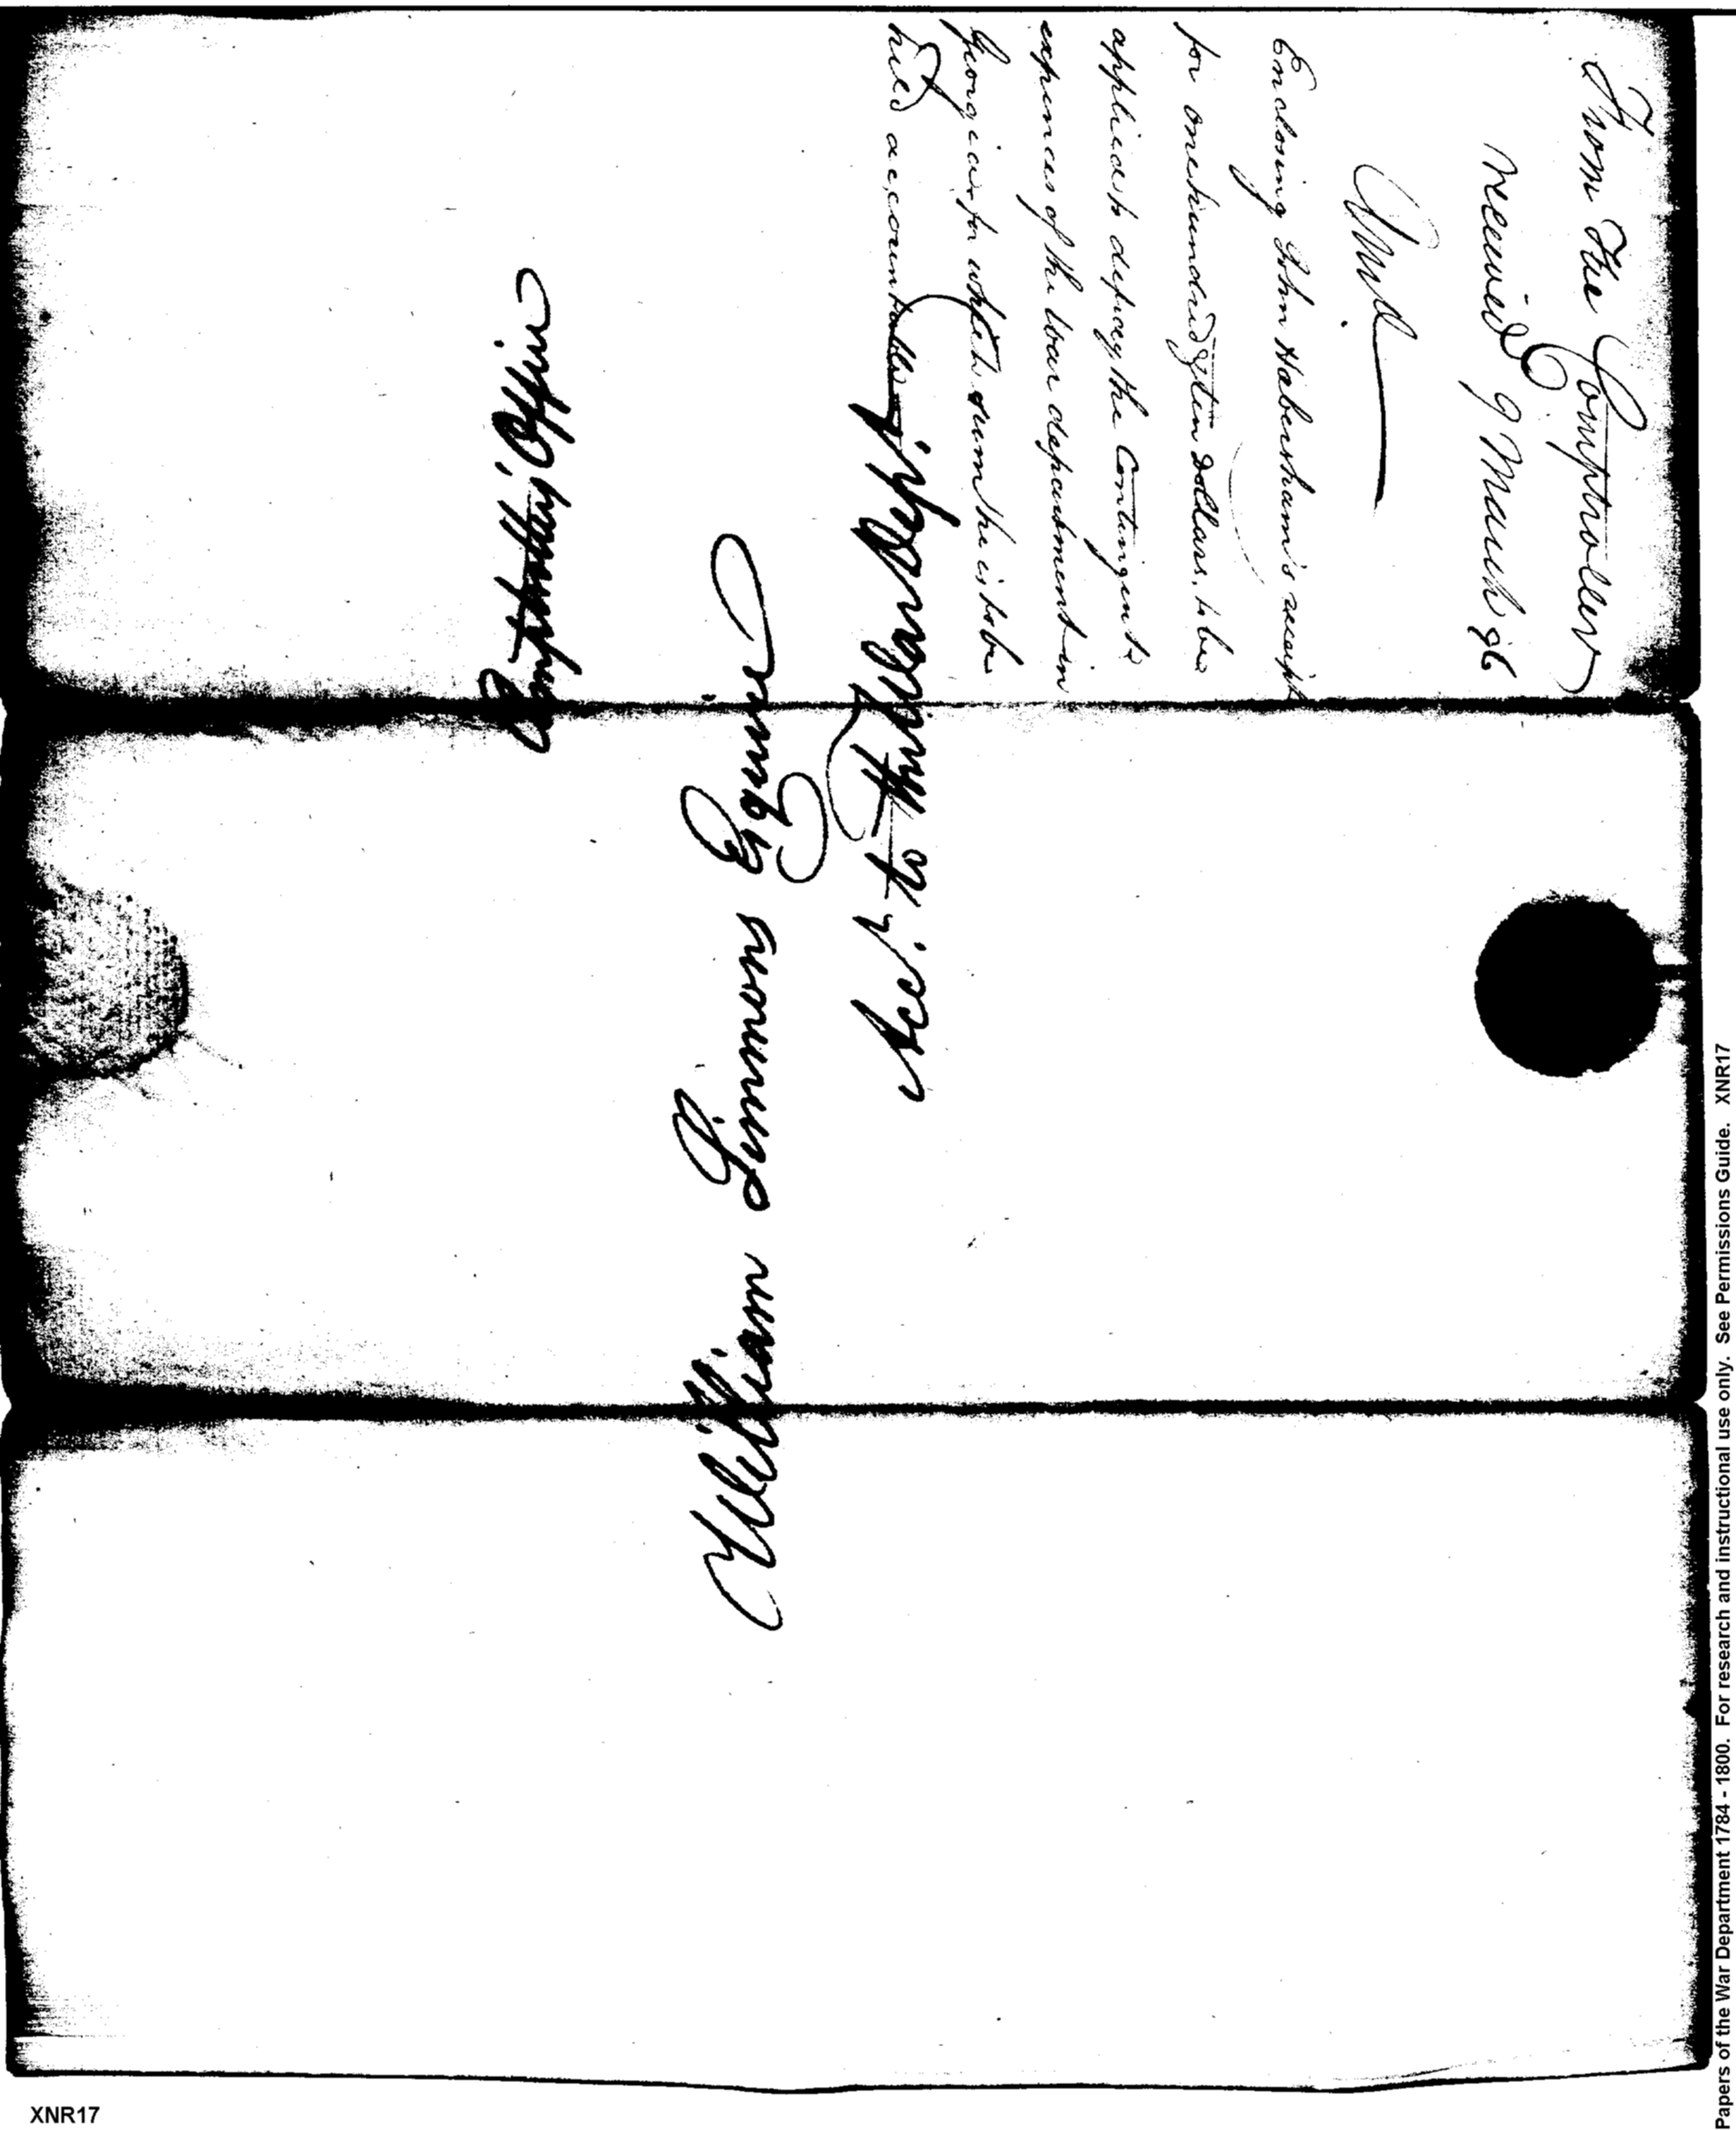 From The Comptroller
received 9 March 96
Enclosing John Habersham's receipt
for one hundred & ten Dollars, to be
applied to defray the Contingent
expences of the war department in
Georgia for which sum he is to be
held accountable
Comptrollers, Office
William Simmons Esquire
Acct. to the War Dept.
XNR17
Papers of the War Department 1784 - 1800. For research and instructional use only. See Permissions Guide. XNR17